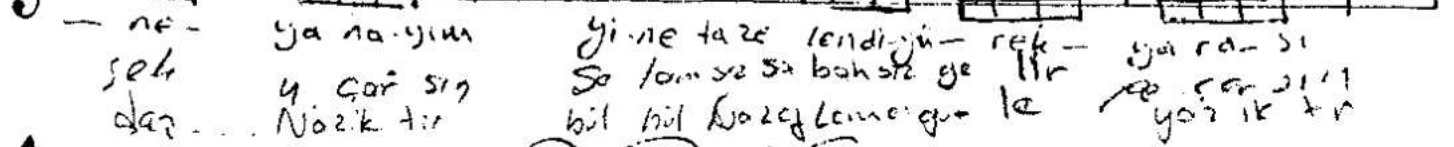 - ne - ya na-yım yi-ne taze lendi-yü- rek- ya ra- sı
şek u çar sın se lam sız sa bah sız ge lir ge çer sin
daz... Nazik tir bül bül Naz eyleme gü le yazık tır